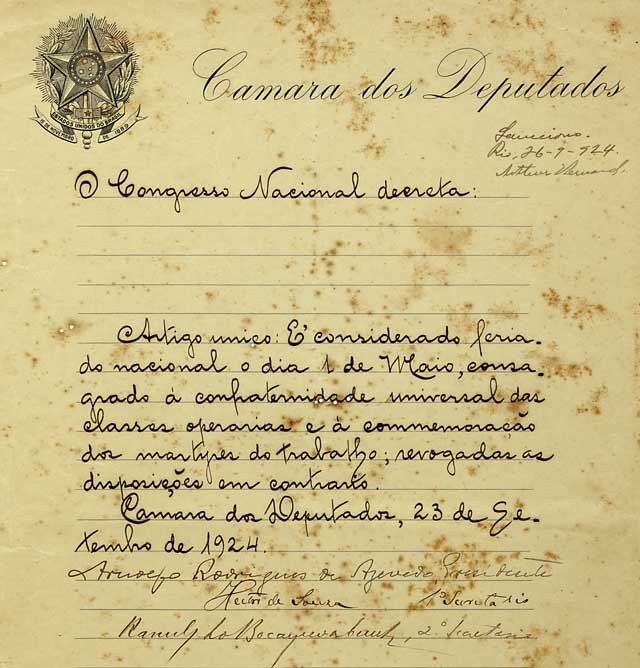 ESTADOS UNIDOS DO BRASIL
15 DE NOVEMBRO DE 1889
Camara dos Deputados
Sancciono.
Rio, 26-9-924.
Arthur Bernardes
O Congresso Nacional decreta:
Artigo unico: E' considerado feria-
do nacional o dia 1 de Maio, consa-
grado á confraternidade universal das
classes operarias e á commemoração
dos martyres do trabalho; revogadas as
disposições em contrario.
Camara dos Deputados, 23 de Se-
tembro de 1924.
Arnolfo Rodrigues de Azevedo Presidente
Heitor de Souza 1º Secretario
Ranulpho Bocayuva 2º Secretario